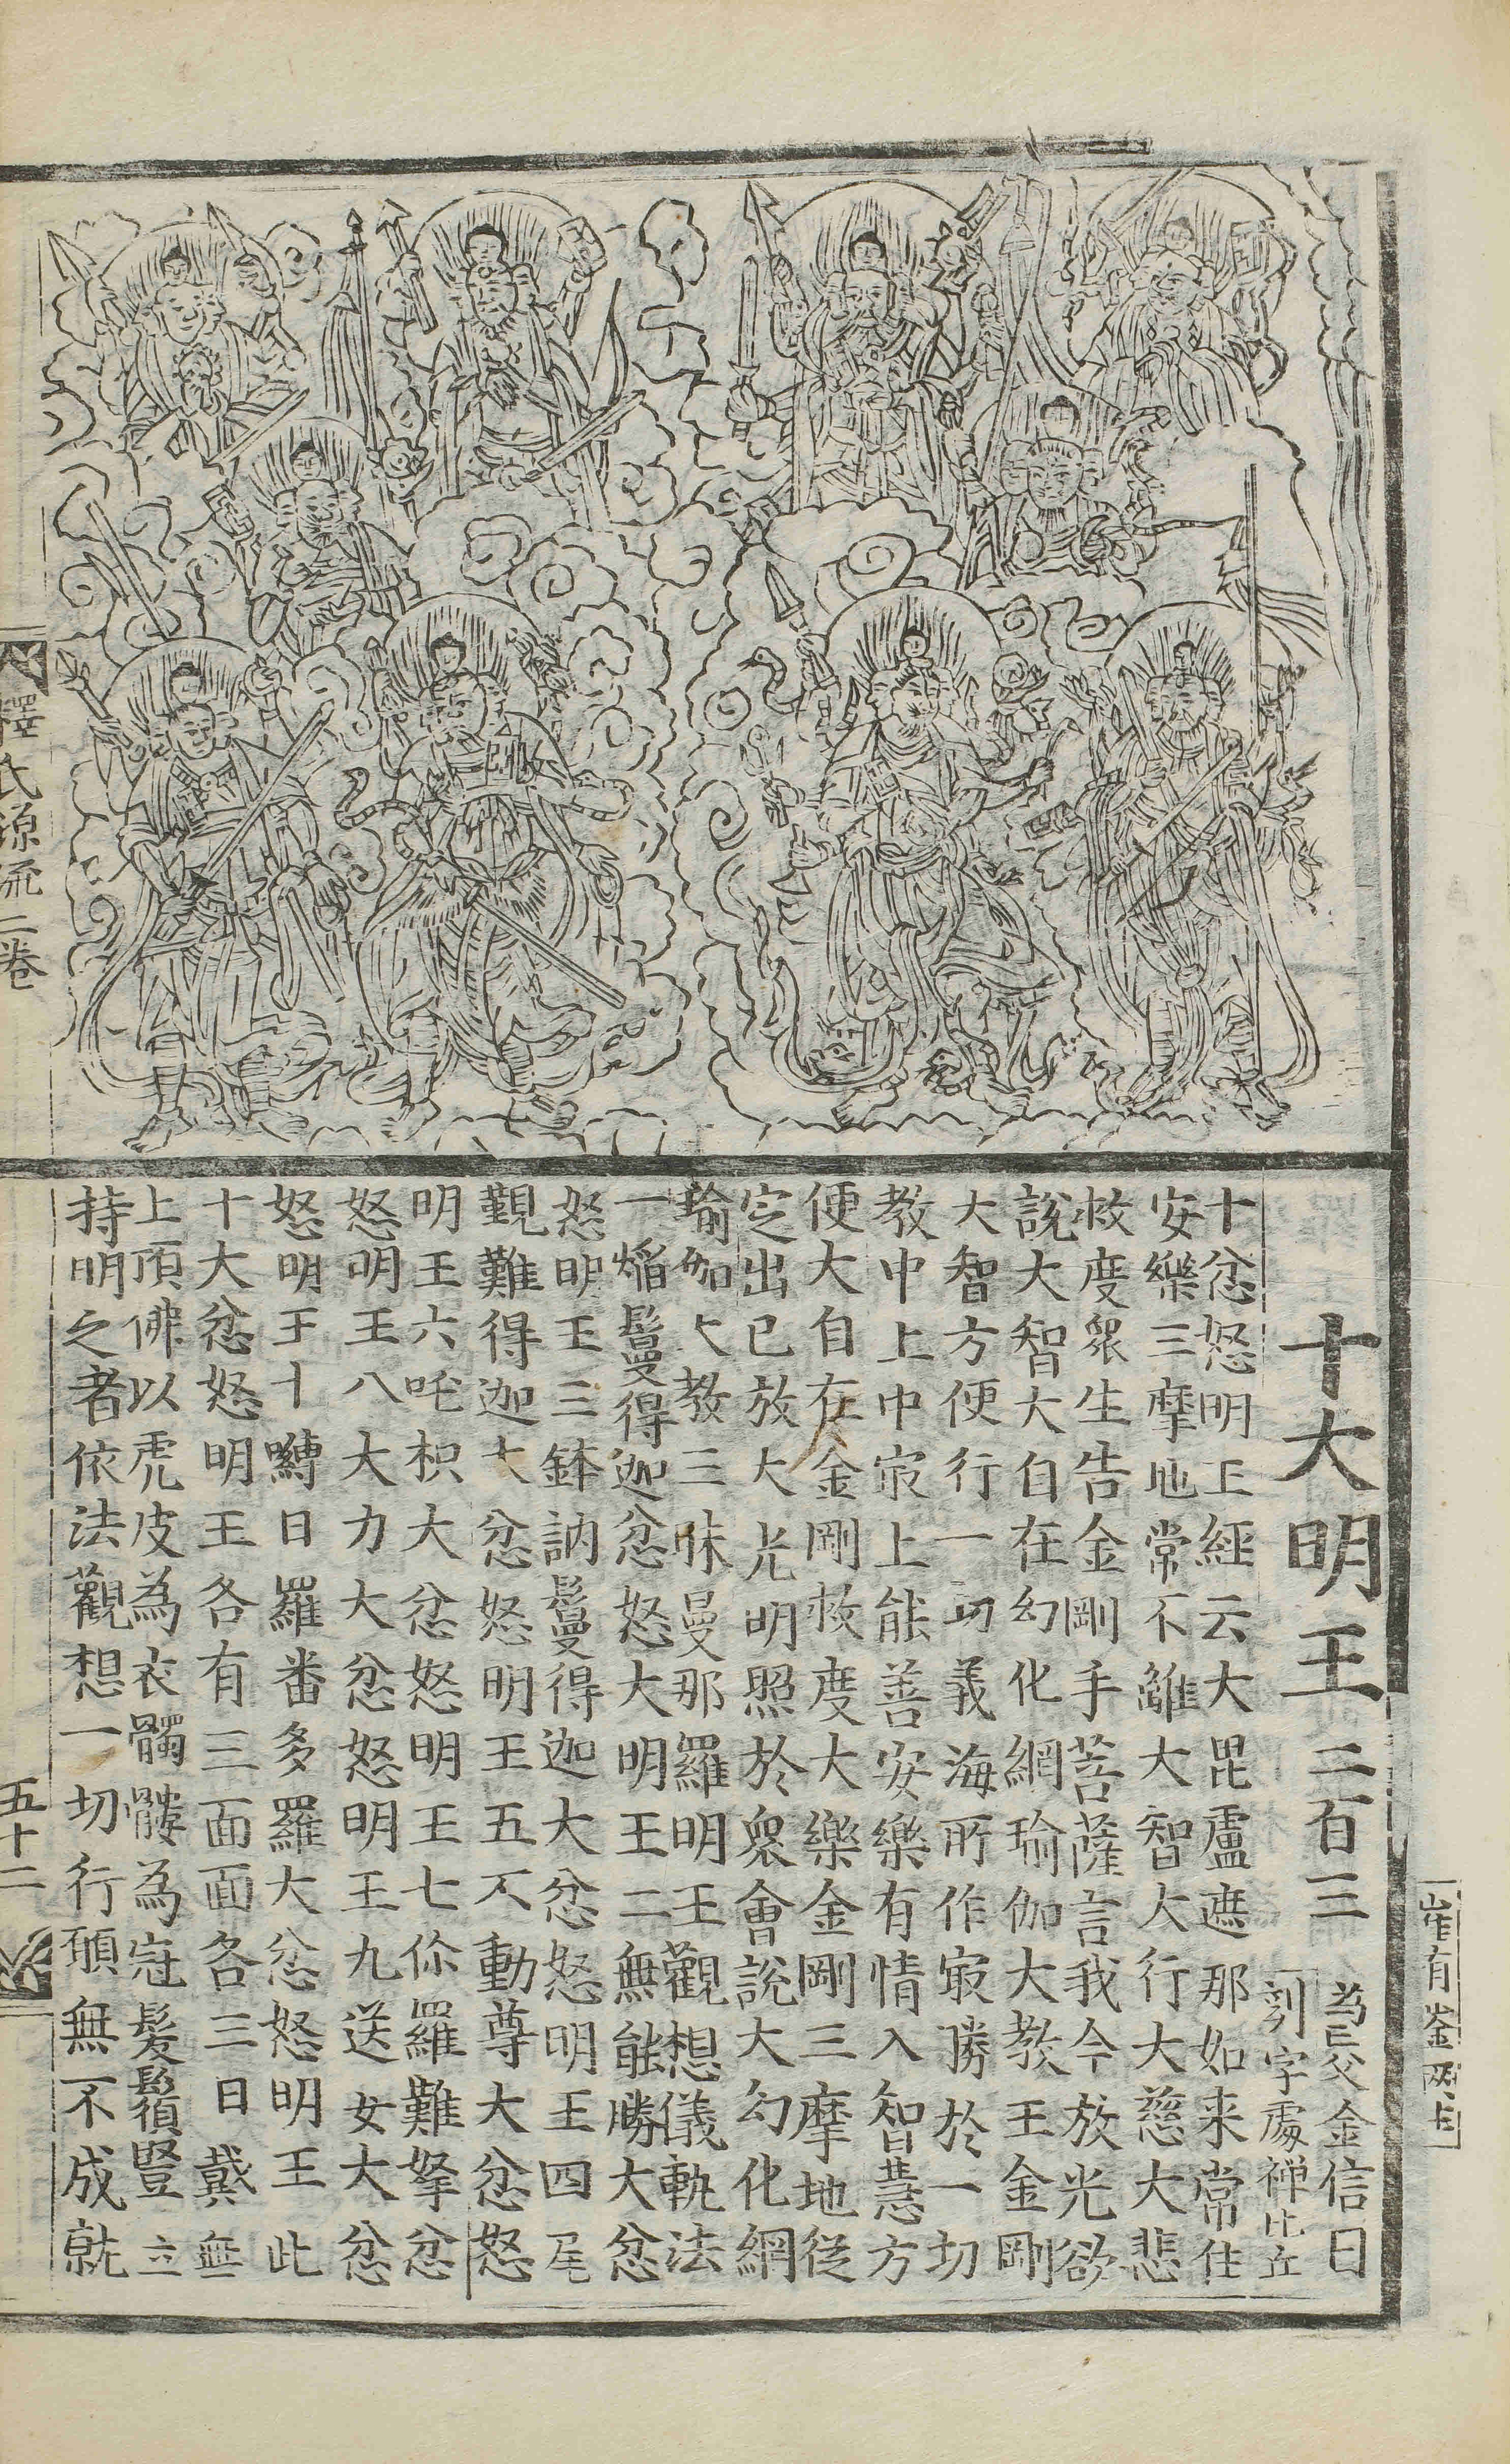 十大明王 二百三
為亡父金信日
刻字處禅比丘
崔有崟兩主
十忿怒明王經云大毘盧遮那如来常住
安樂三摩地常不離大智大行大慈大悲
救度衆生告金剛手菩薩言我今放光欲
說大智大自在幻化網瑜伽大教王金剛
大智方便行一切義海所作㝡勝於一切
教中上中㝡上能善安樂有情入智慧方
便大自在金剛救度大樂金剛三摩地從
定出已放大光明照於衆會說大幻化網
瑜伽大教三昧曼那羅明王觀想儀軌法
一熖鬘得迦忿怒大明王二無能勝大忿
怒明王三鉢訥鬘得迦大忿怒明王四尾
覲難得迦大忿怒明王五不動尊大忿怒
明王六吒枳大忿怒明王七你羅難拏忿
怒明王八大力大忿怒明王九送女大忿
怒明王十嚩日羅番多羅大忿怒明王此
十大忿怒明王各有三面面各三目戴無
上頂俳以虎皮為衣髑髏為冠髮鬚豎立
持明之者依法觀想一切行願無不成就
釋氏源流二卷
五十二